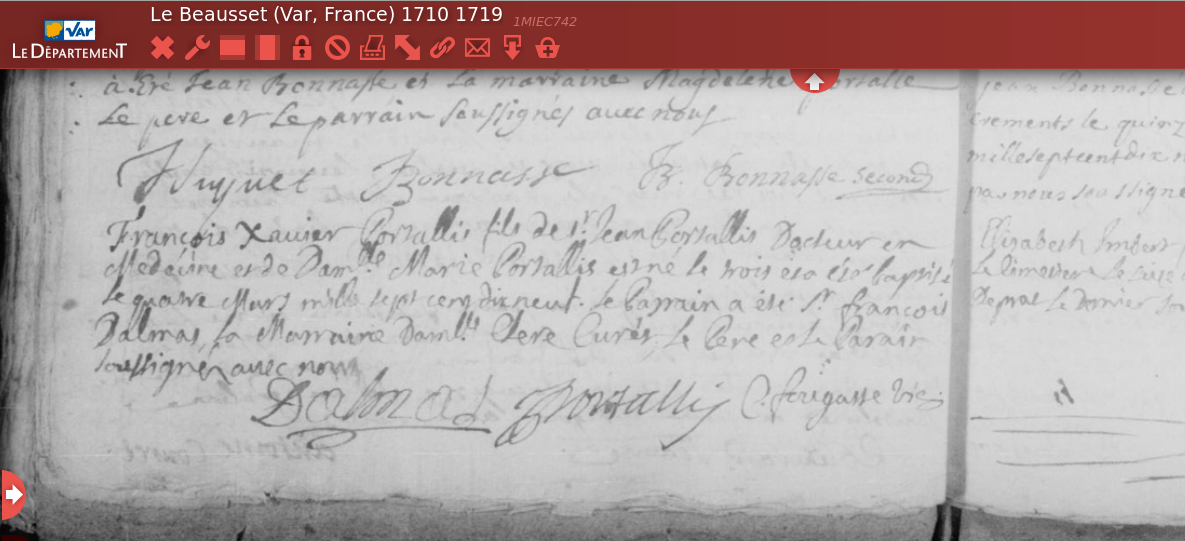 Le Beausset (Var, France) 1710 1719
1MIEC742
VAR
LE DÉPARTEMENT
à été Jean Bonnasse et La marraine Magdeleine
Le pere et Le parrain soussignés avec nous
Huguet Bonnasse B. Bonnasse second
François Xavier Portallis fils de Sr. Jean Portallis Docteur en
Medecine et de Damlle Marie Portallis est né le trois et a été baptisé
Le quatre Mars mille sept cens dix neuf. Le Parrain a été Sr. françois
Dalmas, La Marraine Damlle Clere Curés, Le Pere et Le Parain
soussignés avec nous
Dalmas Portallis
jean Bonnasse
crements le quinz
mille sept cent dix n
par nous soussigné
Elisabeth Imbert